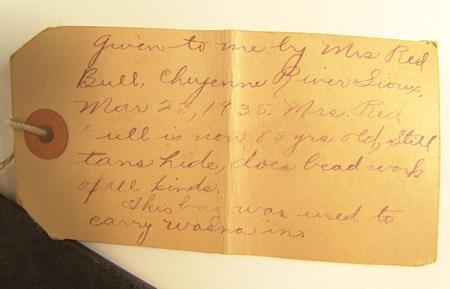 Given to me by Mrs Red
Bull, Cheyenne River Sioux.
Mar 1935. Mrs. Red
Bull is now yrs old, Still
tans hide, does bead work
of all kinds.
This bag was used to
carry wasna in.